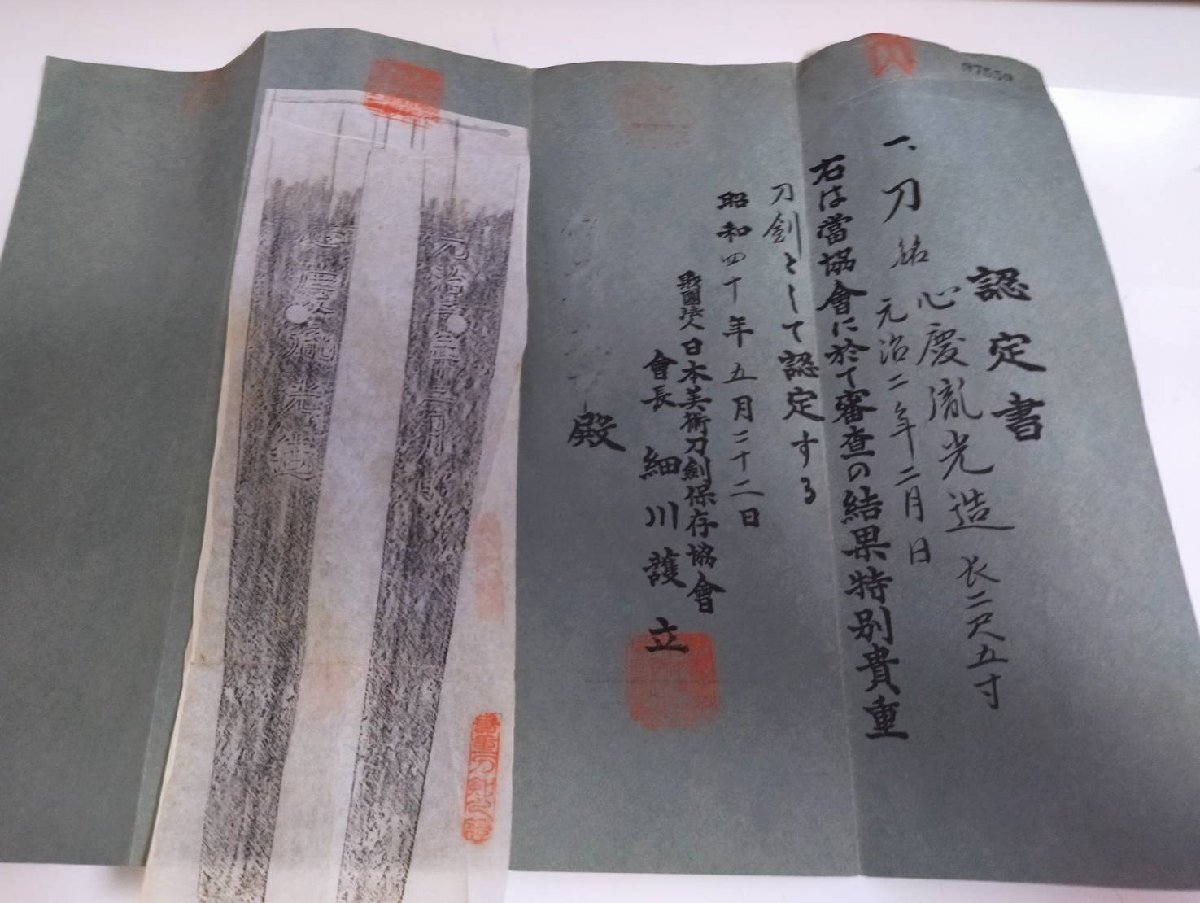 認定書
一、刀 銘 心慶胤光造 長二尺五寸
元治二年二月日
右は當協會に於て審査の結果特別貴重
刀劍として認定する
昭和四十年五月二十二日
財團法人日本美術刀劍保存協會
會長 細川護立
殿
心慶胤光造